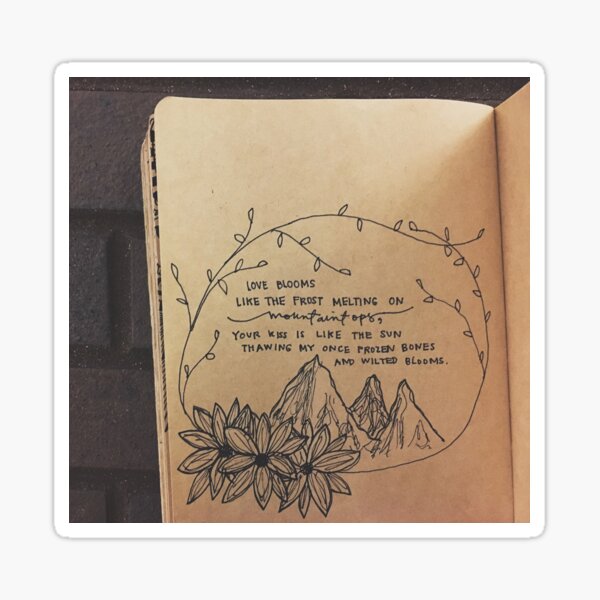 LOVE BLOOMS
LIKE THE FROST MELTING ON
mountaintops,
YOUR KISS IS LIKE THE SUN
THAWING MY ONCE FROZEN BONES
AND WILTED BLOOMS.